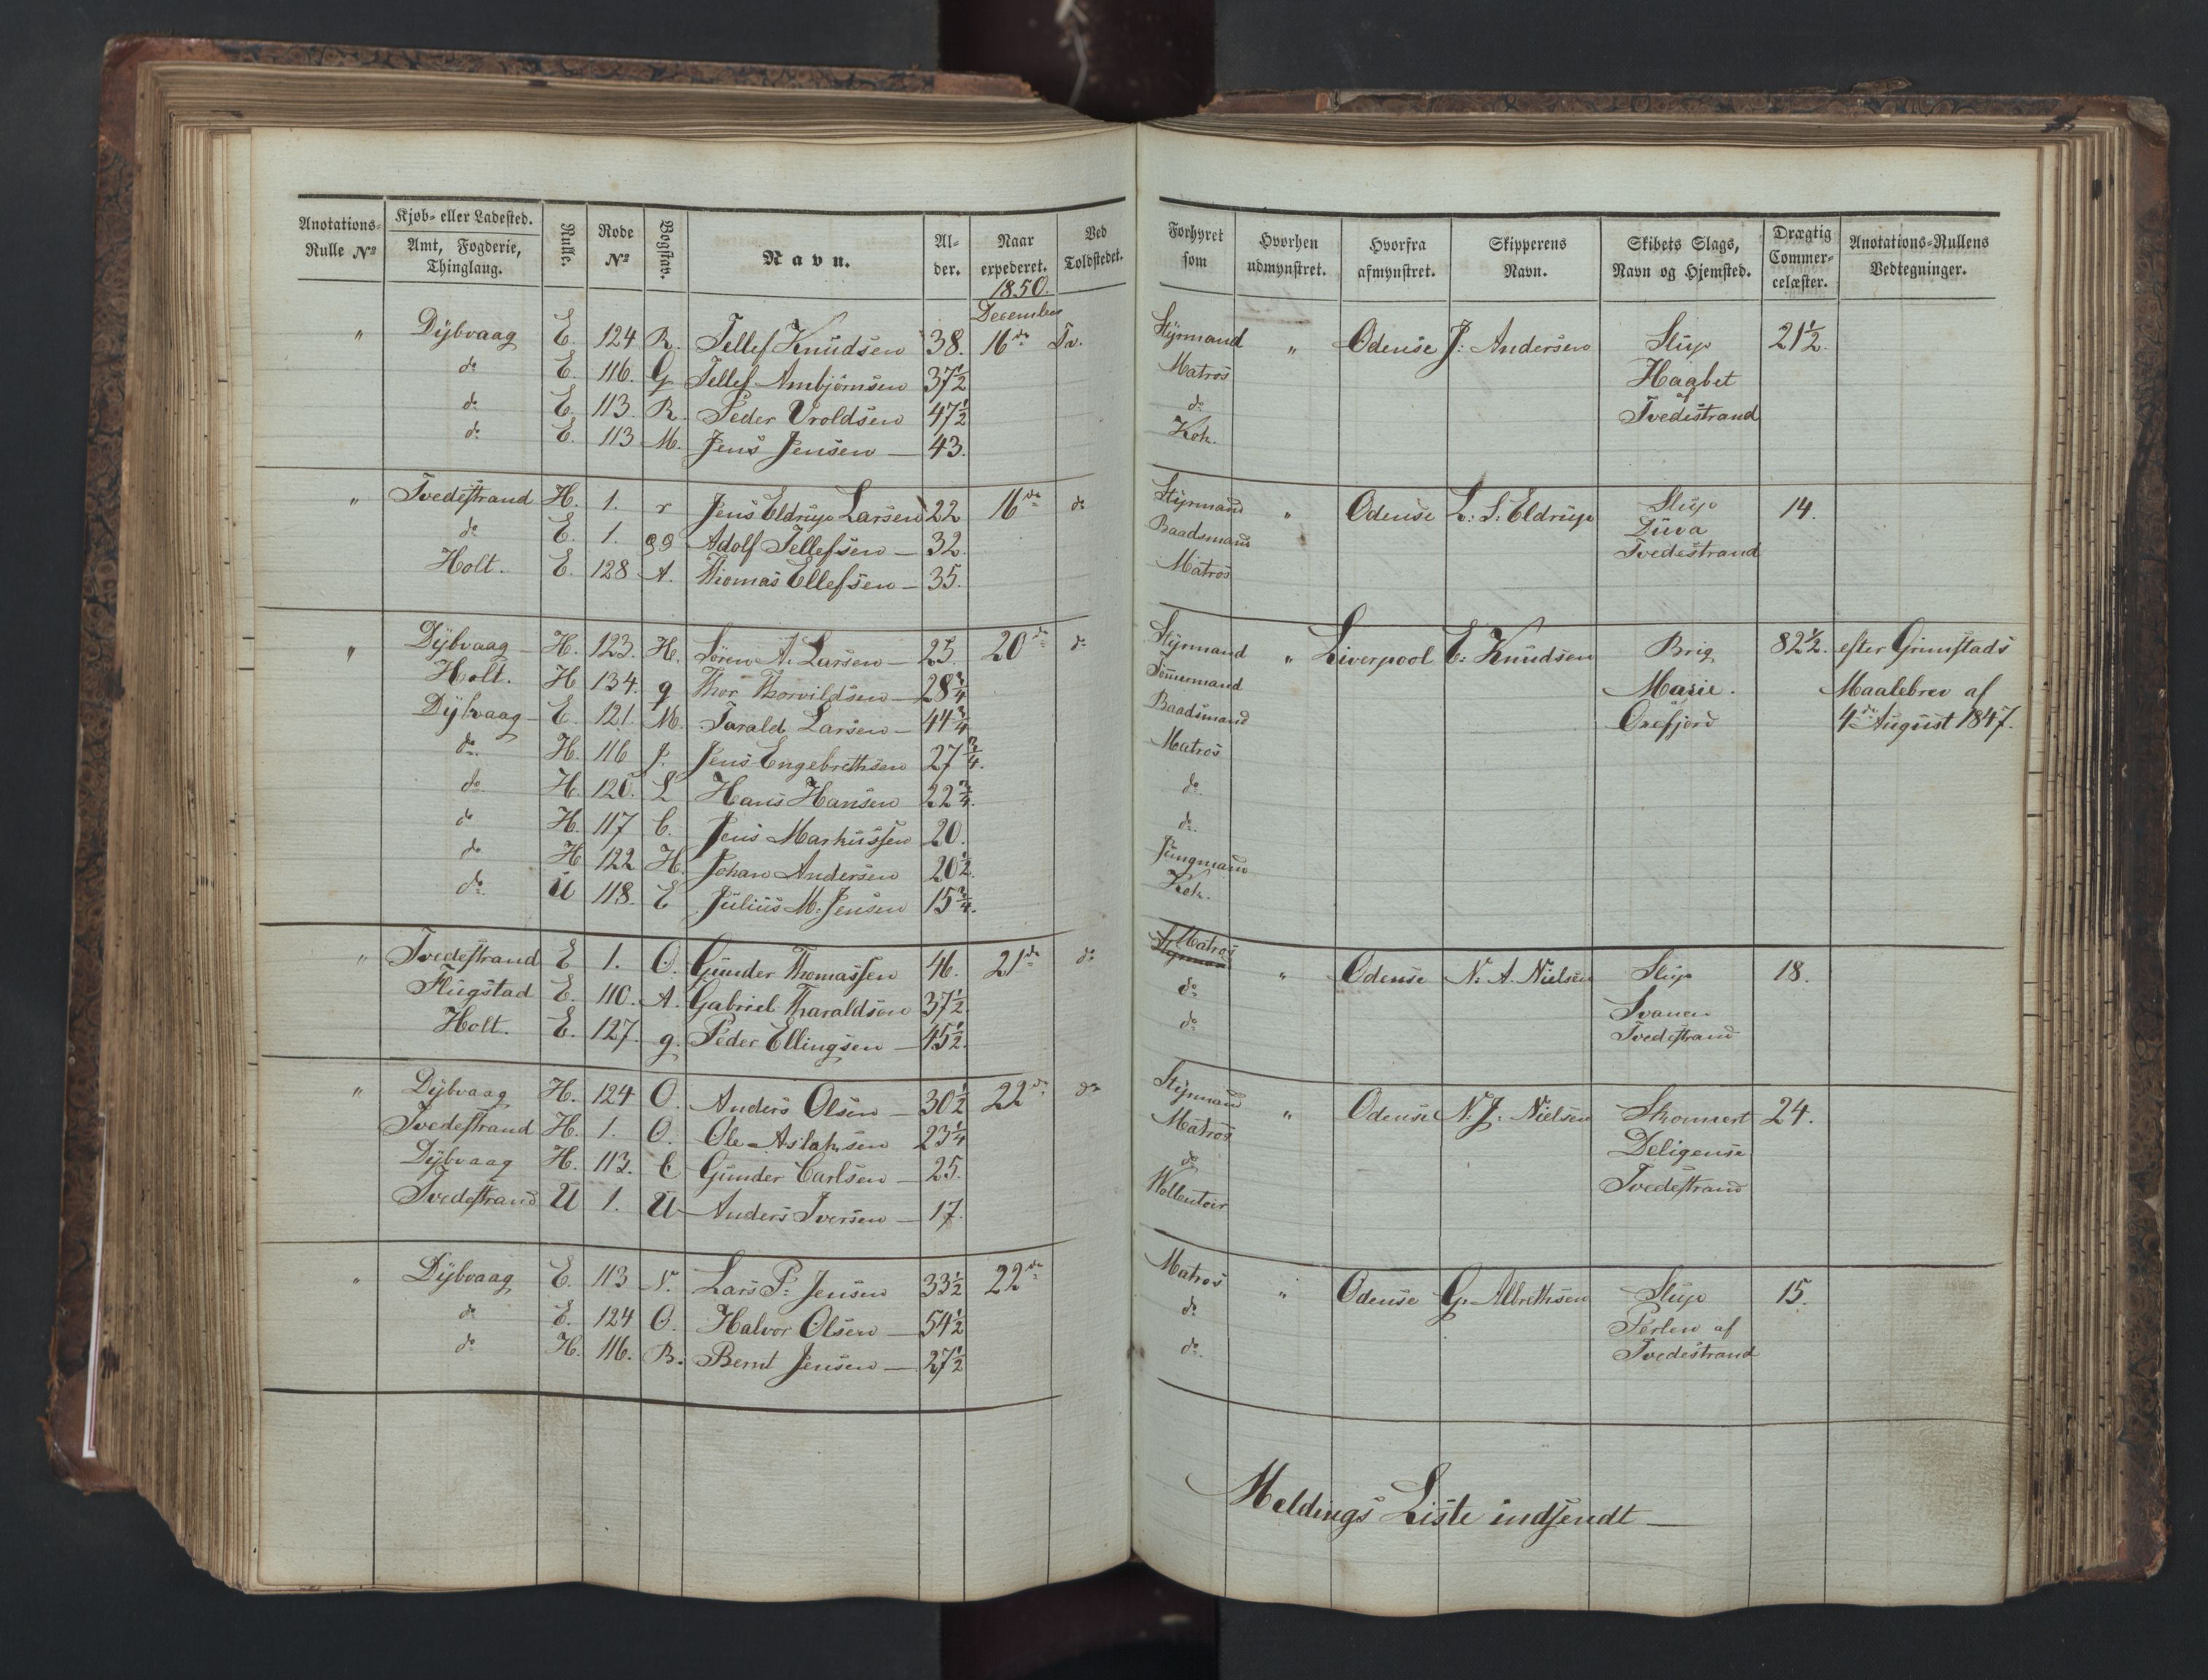 Anotations- Rulle № | Kjøb- eller Ladested. Amt, Fogderie, Thinglaug. | Rulle. | Rode № | Bogstav. | Navn. | Al- der. | Naar expederet. 1850. | Ved Toldstedet. | Forhyret som | Hvorhen udmynstret. | Hvorfra afmynstret. | Skipperens Navn. | Skibets Slags, Navn og Hjemsted. | Drægtig Commer- celæster. | Anotations-Rullens Vedtegninger.
December
" Dybvaag E. 124 R. Tellef Knudsen 38. 16de Tv. Styrmand " Odense J: Andersen Slup 21½.
do E. 116. G Tellef Ambjørnsen 37½ Matros Haabet
do E. 113. R. Peder Vroldsen 47½ do af Tvedestrand
do E. 113 M. Jens Jensen — 43. Kok.
" Tvedestrand H. 1. r Jens Eldrup Larsen 22 16de do Styrmand " Odense L: S. Eldrup Slup 14.
do E. 1. Adolf Tellefsen — 32. Baadsmand Duva
Holt. E. 128 A. Thomas Ellefsen — 35. Matros Tvedestrand
" Dybvaag H. 123. H. Søren A. Larsen — 25. 20de do Styrmand " Liverpool E: Knudsen Brig 82½. efter Grimstads
Holt. H 134. g Thor Thorvildsen — 28¾ Tømmermand Marie. Maalebrev af
Dybvaag — E. 121. M. Tarald Larsen — 44¾ Baadsmand Oxefjord 4de August 1847.
do H. 116 J. Jens Engebrethsen 27¾. Matros
do H. 120. L Hans Hansen 22¾. do
do H. 117 C. Jens Markussen 20. do
do H 122 H. Johan Andersen 20½. Jungmand
do U 118. E Julius M. Jensen 15¾. Kok.
" Tvedestrand E 1. O. Gunder Thomassen 46. 21de do Matros Styrmand " Odense N. A. Nielsen Slup 18.
Flugstad E. 110. A. Gabriel Tharaldsen 37½. do Svanen
Holt. E. 127. g. Peder Ellingsen — 45½. do Tvedestrand
" Dybvaag H. 124 O. Anders Olsen — 30½ 22de do Styrmand " Odense N. J. Nielsen Skonnert 24.
Tvedestrand H. 1. O. Ole Aslaksen 23¼ Matros Deligense
Dybvaag H. 113. C Gunder Carlsen — 25. do Tvedestrand
Tvedestrand U 1. U Anders Iversen — 17.
" Dybvaag E. 113 N. Lars P: Jensen 33½ 22de Matros " Odense G. Albrethsen Slup 15.
do E. 124 O. Halvor Olsen — 54½ do Perlen af
do H. 116. B. Bernt Jensen — 27½ do Tvedestrand
Meldings Liste indsendt —